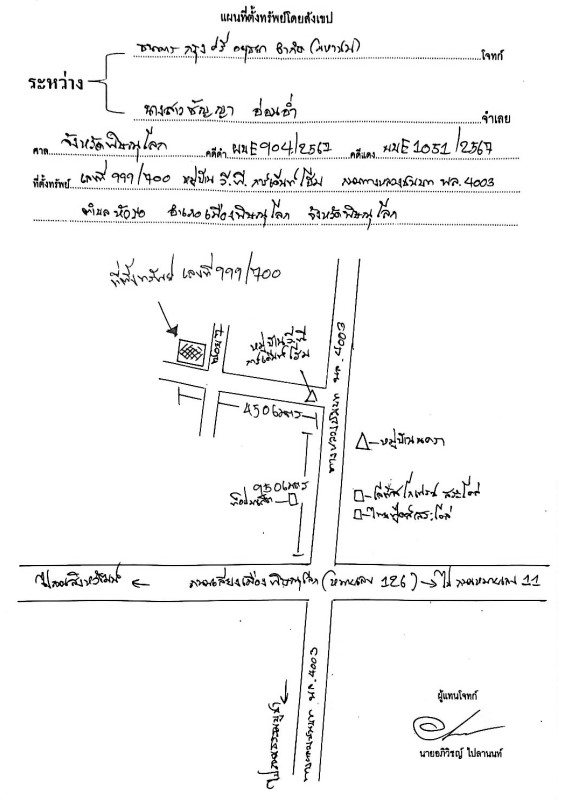 แผนที่ตั้งทรัพย์โดยสังเขป
ธนาคาร กรุงศรีอยุธยา จำกัด (มหาชน) โจทก์
ระหว่าง
นางสาวธัญญา อ่อนฉ่ำ จำเลย
ศาล จังหวัดพิษณุโลก คดีดำ ผบE904/2567 คดีแดง ผบE1051/2567
ที่ตั้งทรัพย์ เลขที่ 999/700 หมู่บ้าน วี.พี. การ์เด้นท์โฮม ถนนทางหลวงชนบท พล.4003
ตำบล หัวรอ อำเภอเมืองพิษณุโลก จังหวัดพิษณุโลก
ที่ตั้งทรัพย์ เลขที่ 999/700
หมู่บ้านวีพี
การ์เด้นท์โฮม
ทางหลวงชนบท พล.4003
450เมตร
หมู่บ้านนครา
950เมตร
ถนนเลี่ยงเมืองพิษณุโลก (หมายเลข 126)
ไป ถนนหมายเลข 11
ทางหลวงชนบท พล.4003
ผู้แทนโจทก์
นายอภิวิชญ์ ไปลานนท์